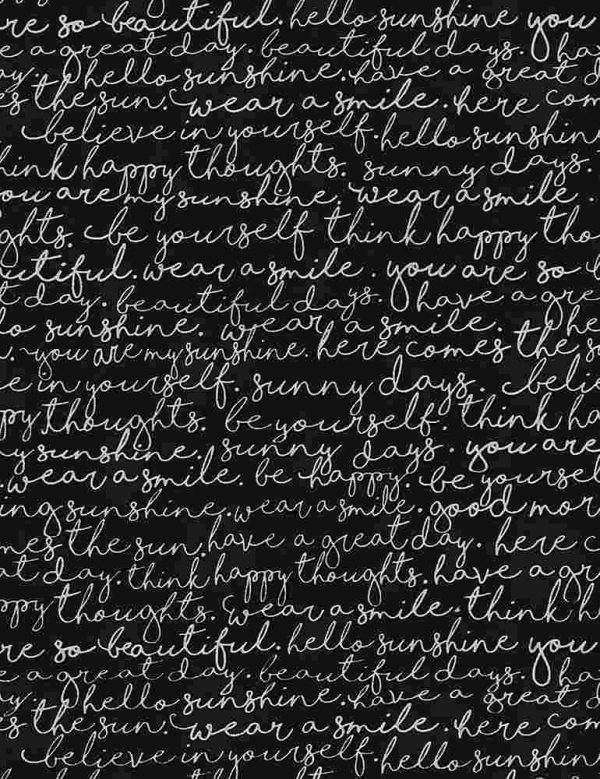 re so beautiful. hello sunshine you
e a great day. beautiful days. ha
ay. hello sunshine. have a great d
es the sun. wear a smile. here com
believe in yourself. hello sunshin
hink happy thoughts. sunny days.
ou are my sunshine. wear a smile.
ghts. be yourself think happy tho
autiful. wear a smile. you are so b
t day. beautiful days. have a gre
lo sunshine. wear a smile. he
. you are my sunshine. here comes the s
e in yourself. sunny days. belie
ppy thoughts. be yourself. think ha
y sunshine. sunny days. you are
. wear a smile. be happy. be yoursel
ing sunshine. wear a smile. good mor
mes the sun. have a great day. here c
at day. think happy thoughts. have a gr
ppy thoughts. wear a smile. think h
re so beautiful. hello sunshine you
e a great day. beautiful days. ha
ay. hello sunshine. have a great d
es the sun. wear a smile. here com
believe in yourself. hello sunshin
thoughts